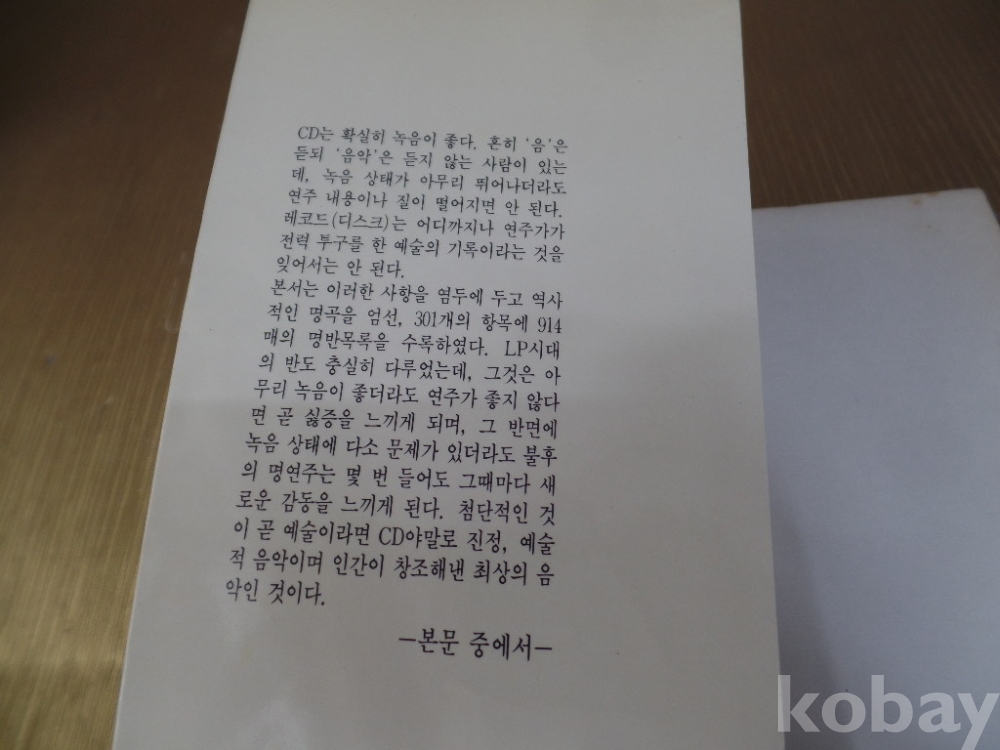 CD는 확실히 녹음이 좋다. 흔히 ‘음’은
듣되 ‘음악’은 듣지 않는 사람이 있는
데, 녹음 상태가 아무리 뛰어나더라도
연주 내용이나 질이 떨어지면 안 된다.
레코드(디스크)는 어디까지나 연주가가
전력 투구를 한 예술의 기록이라는 것을
잊어서는 안 된다.
본서는 이러한 사항을 염두에 두고 역사
적인 명곡을 엄선, 301개의 항목에 914
매의 명반목록을 수록하였다. LP시대
의 반도 충실히 다루었는데, 그것은 아
무리 녹음이 좋더라도 연주가 좋지 않다
면 곧 싫증을 느끼게 되며, 그 반면에
녹음 상태에 다소 문제가 있더라도 불후
의 명연주는 몇 번 들어도 그때마다 새
로운 감동을 느끼게 된다. 첨단적인 것
이 곧 예술이라면 CD야말로 진정, 예술
적 음악이며 인간이 창조해낸 최상의 음
악인 것이다.
—본문 중에서—
kobay